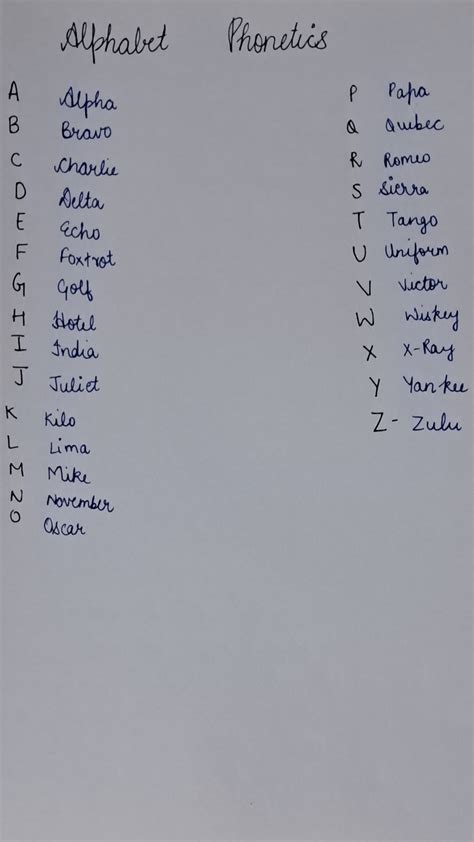 Alphabet Phonetics
A Alpha
B Bravo
C Charlie
D Delta
E Echo
F Foxtrot
G Golf
H Hotel
I India
J Juliet
K Kilo
L Lima
M Mike
N November
O Oscar
P Papa
Q Quebec
R Romeo
S Sierra
T Tango
U Uniform
V Victor
W Wiskey
X X-Ray
Y Yankee
Z- Zulu